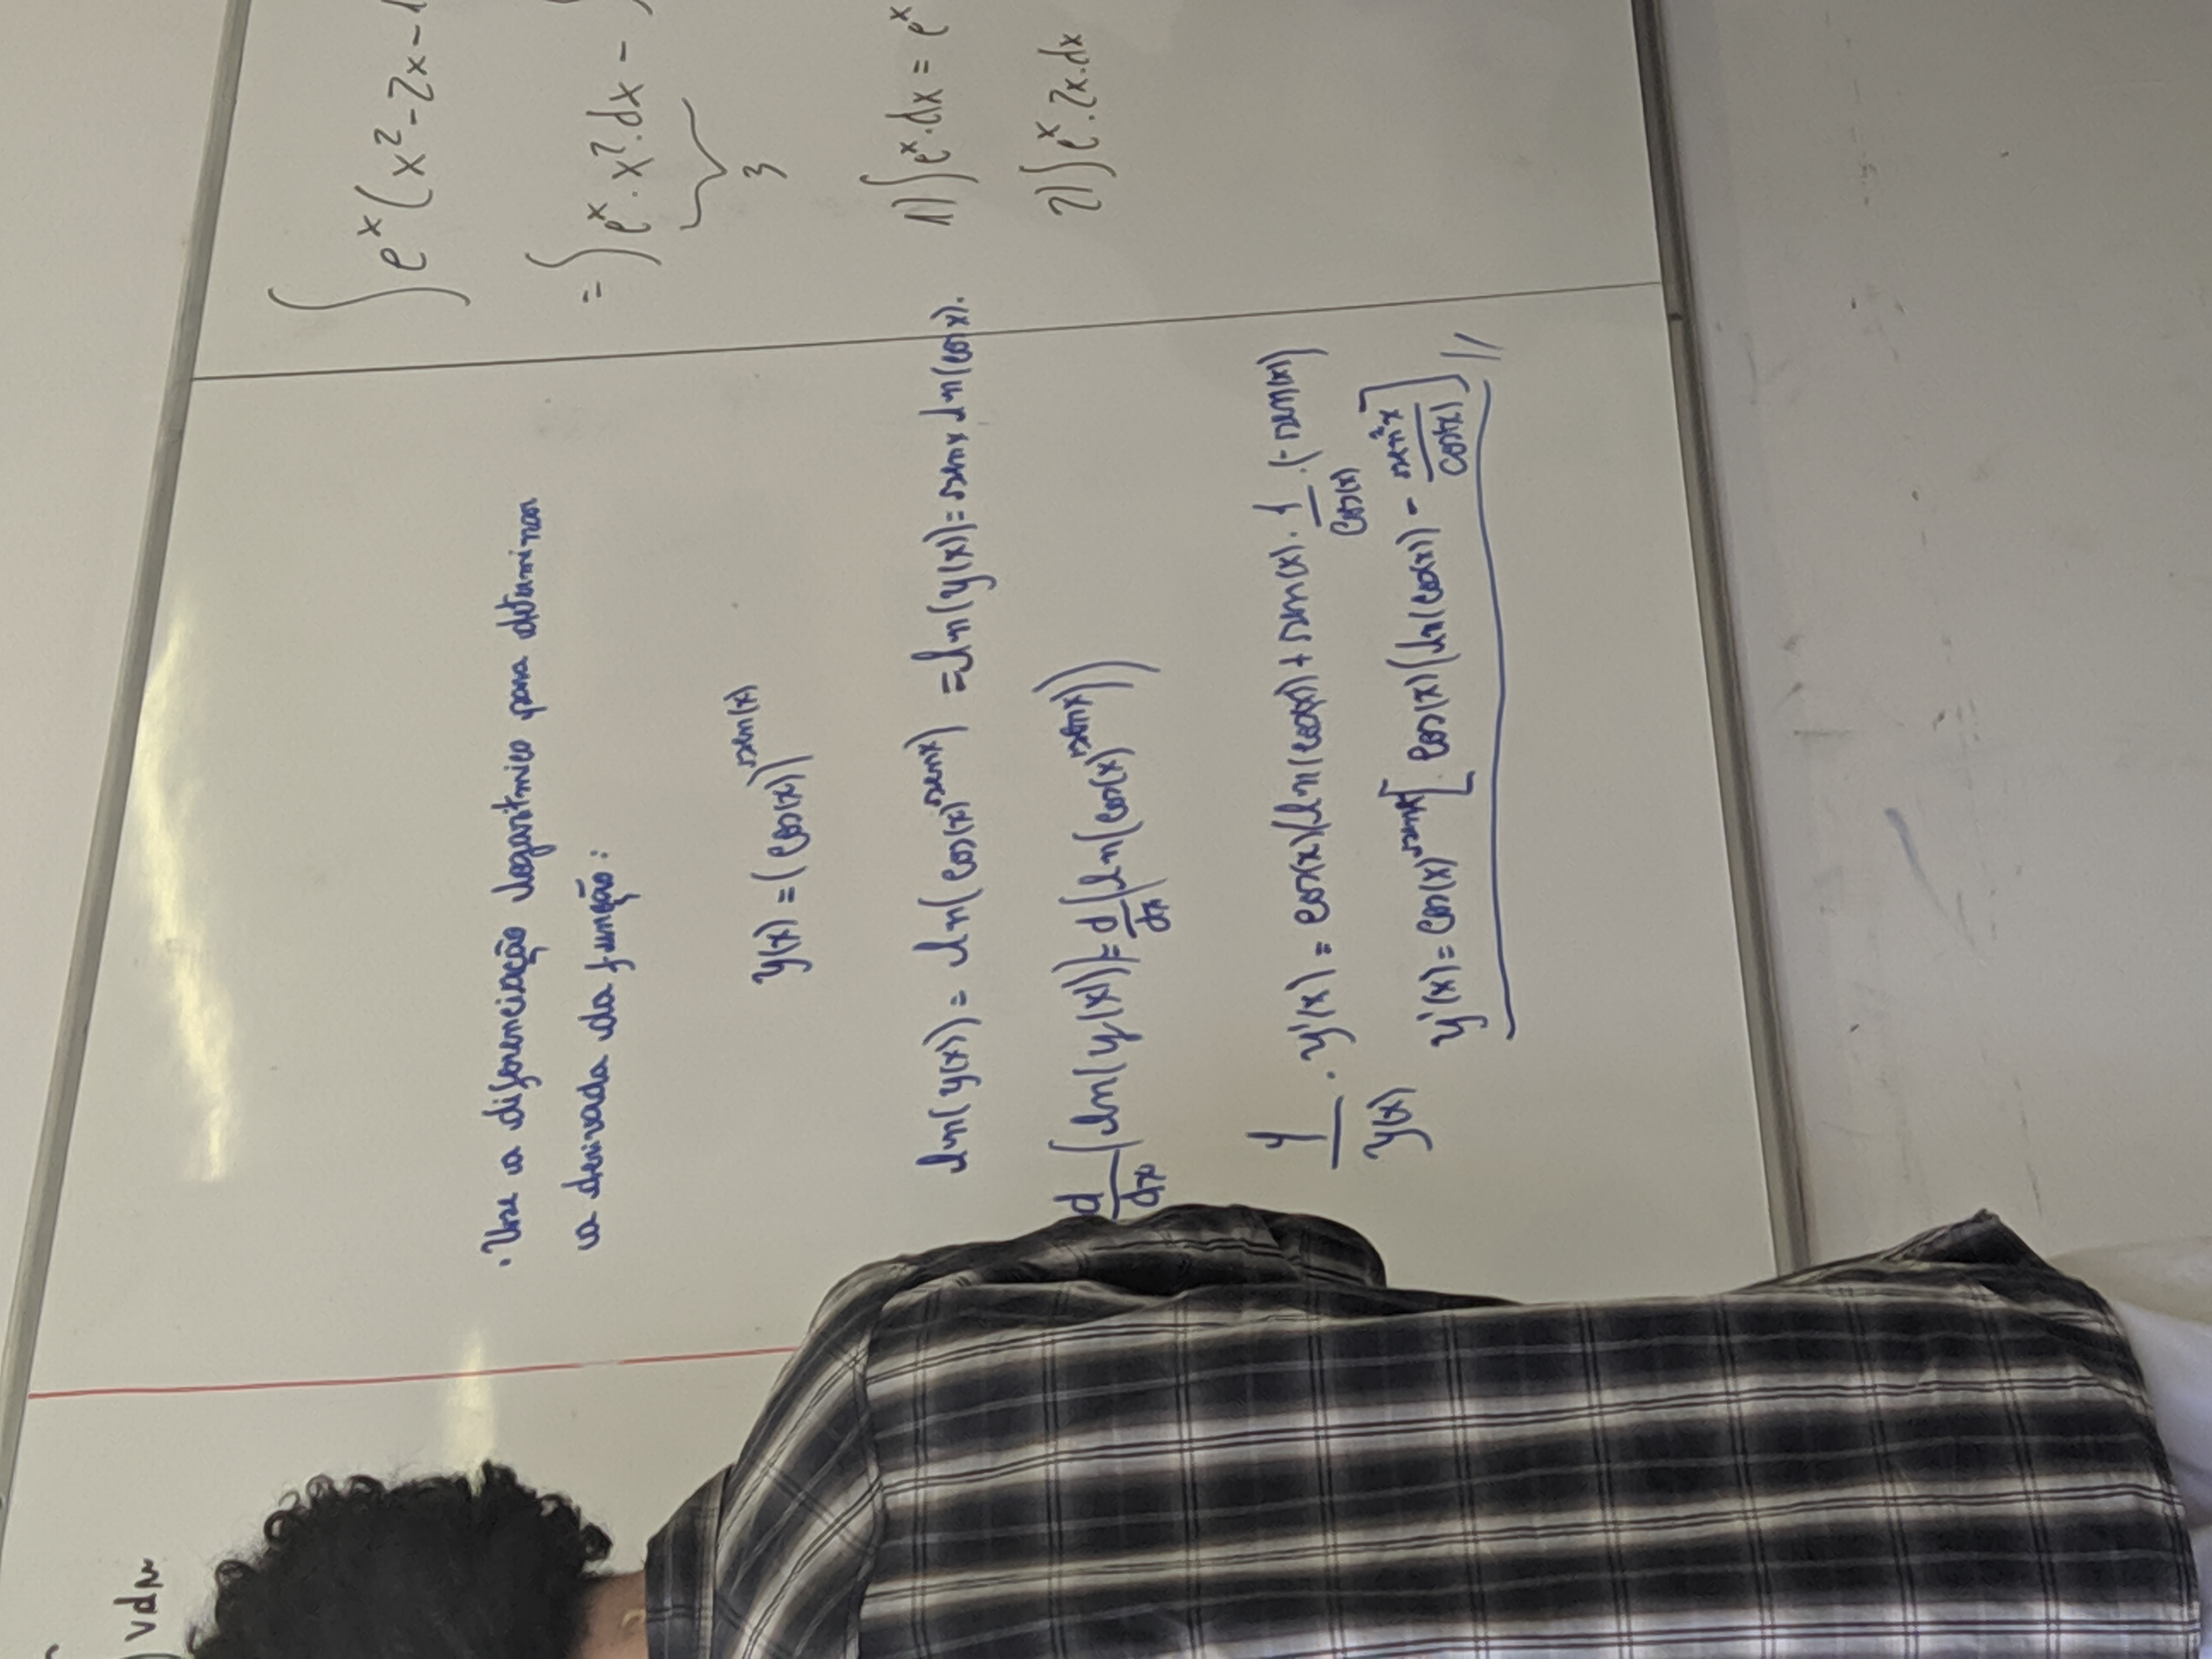 vdu
· Use a diferenciação logarítmica para determinar
a derivada da função:
y(x) = (cos(x))^sen(x)
ln(y(x)) = ln(cos(x)^senx) = ln(y(x)) = senx ln(cosx).
d/dx (ln(y(x))) = d/dx (ln(cos(x)^senx))
1/y(x) · y'(x) = cos(x)(ln(cos(x)) + sen(x) · 1/cos(x) · (-sen(x))
y'(x) = cos(x)^senx [cos(x)(ln(cos(x)) - sen²x/cos(x)] //
∫ e^x (x² - 2x - 1
= ∫ e^x · x² · dx - ∫
3
1) ∫ e^x · dx = e^x
2) ∫ e^x · 2x · dx